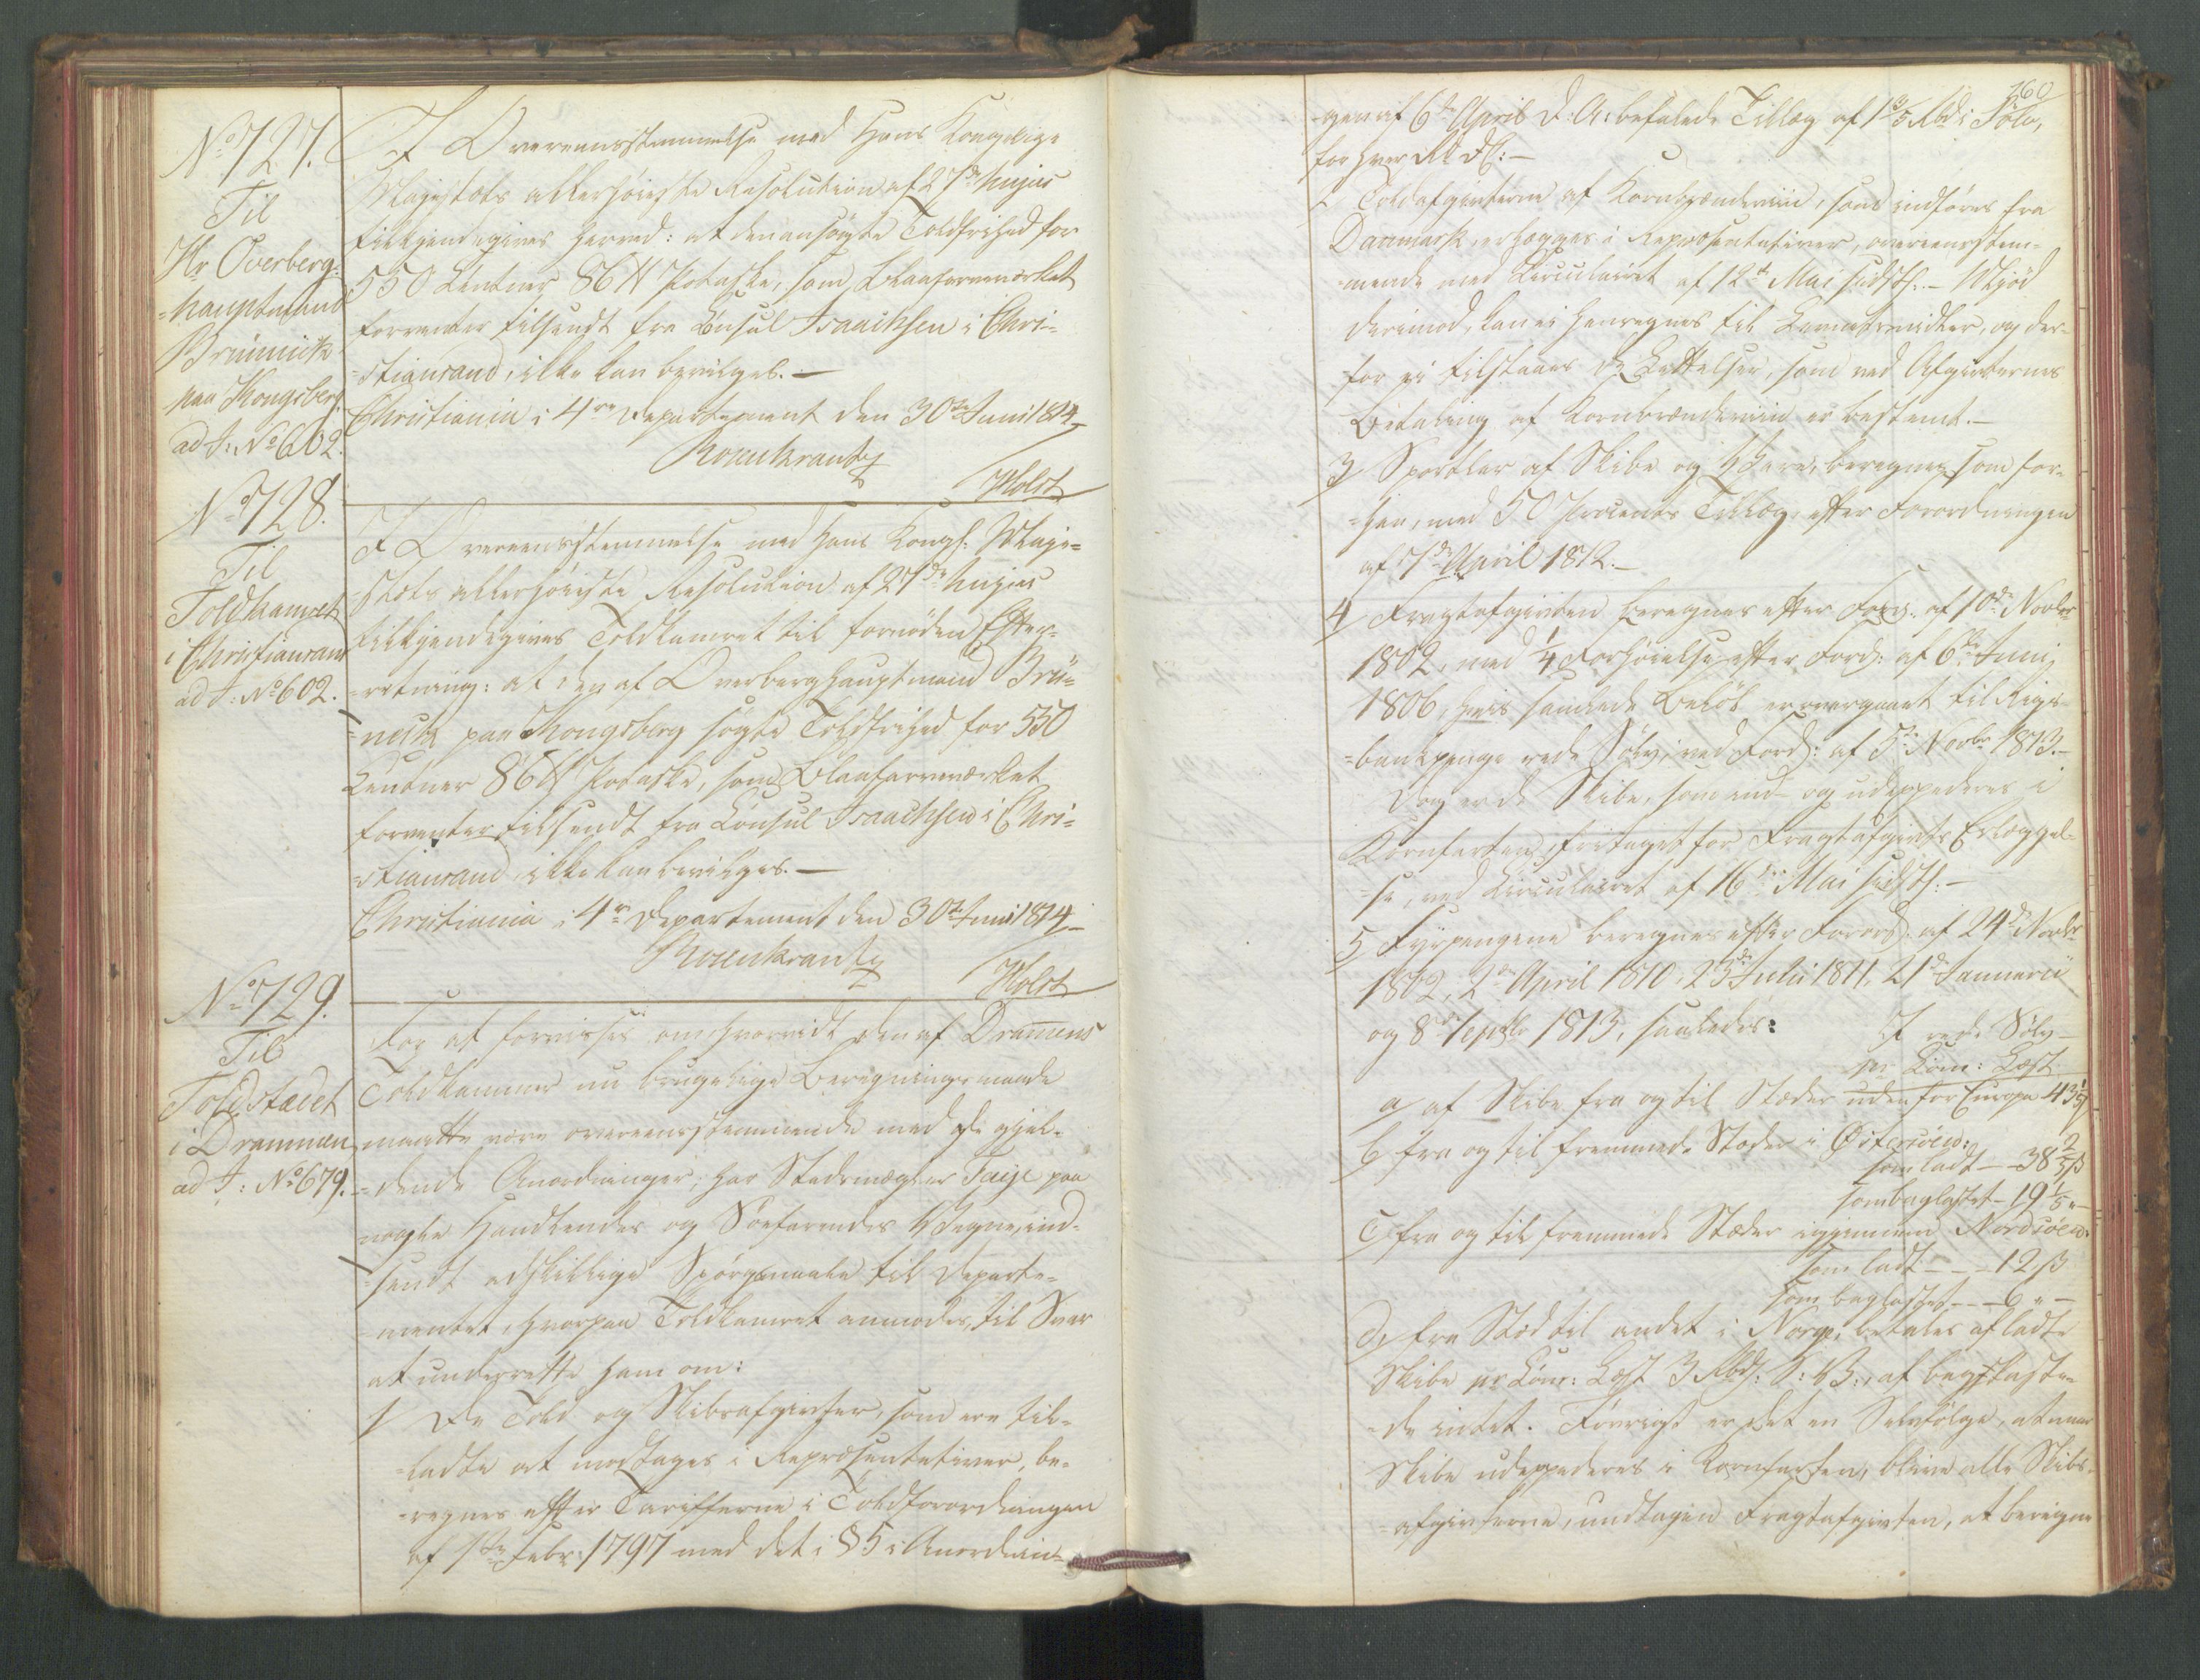 No 727.
Til
Hr Overberg-
-hauptmand
Brünnick
paa Kongsberg
ad J: No 602.
I Overeensstemmelse med Hans Kongelige
Majestæts allerhøieste Resolution af 27de hujus
tilkjendegives herved: at den ansøgte Toldfrihed for
550 Centner 86 ℔ Potaske, som Blaafarveværket
forventer tilsendt fra Consul Isaachsen i Chri-
-stiansand, ikke kan bevilges. —
Christiania i 4re Departement den 30te Juni 1814
Rosenkrantz
/Holst
No 728.
Til
Toldkamret
i Christiansand
ad J: No 602.
I Overeensstemmelse med Hans Kongl: Maje-
-stæts allerhøieste Resolution af 27de hujus
tilkjendegives Toldkamret til fornøden Efter-
-retning: at den af Overberghauptmand Brü-
-nick paa Kongsberg søgte Toldfrihed for 550
Centner 86 ℔ Potaske, som Blaafarveværket
forventer tilsendt fra Consul Isaachsen i Chri-
-stiansand, ikke kan bevilges. —
Christiania i 4re Departement den 30te Juni 1814
Rosenkrantz
/Holst
No 729.
Til
Toldstædet
i Drammen
ad J: No 679.
For at forvisses om, hvorvidt den af Dramens
Toldkammer nu brugelige Beregningsmaade
maatte være overeensstemmende med de gjel-
-dende Anordninger, har Stadsmægler Faije paa
nogle Handlendes og Søefarendes Vegne, ind-
-sendt adskillige Spørgsmaale til Departe-
-mentet, hvorpaa Toldkamret anmodes, til Svar
at underrette ham om:
1/ De Told og Skibsafgivter, som ere til-
-ladte at modtages i Repræsentativer, be-
-regnes efter Tarifferne i Toldforordningen
af 1ste Febr: 1797 med det i § 5 i Anordnin-
260
-gen af 6te April d: A: befalede Tillæg af 1 3/5 Rbd i Sølv,
for hver Rd DC: —
2 Toldafgivterne af Kornbrændeviin, som indføres fra
Danmark, erlægges i Repræsentativer, overeensstem-
-mende med Circulairet af 12te Mai sidstl: — Miød
derimod, kan ei henregnes til Levnetsmidler, og der-
-for ei tilstaaes de Lettelser, som ved Afgivternes
Betaling af Kornbrændeviin er bestemt. —
3/ Sportler af Skibe og Vare, beregnes som for-
-hen, med 50 Procents Tillæg, efter Forordningen
af 7de April 1812. —
4 Fragtafgivten beregnes efter Ford: af 10de Novbr
1802, med 1/4 Forhøielse efter Ford: af 6te Juni
1806, hvis samlede Beløb er overgaaet til Rigs-
-bankpenge rede Sølv, ved Ford: af 5te Novbr 1813. —
Dog er de Skibe, som ind- og udexpederes i
Kornfarten, fritaget for Fragtafgivts Erlæggel-
-se, ved Circulairet af 16de Mai sidstl: —
5 Fyrpengene beregnes efter Forord: af 24de Novbr
1802, 2den April 1810, 23de Julii 1811, 21de Januarii
og 8de Septbr 1813, saaledes:
I rede Sølv
pr Com: Læst
a/ af Skibe fra og til Stæder uden for Europa 43 1/5
b fra og til fremmede Stæder i Østersøen:
som ladt — 38 2/5 ß
som baglastet — 19 1/5 " —
c/ fra og til fremmede Stæder igjennem Nordsøen:
som ladt — — 12 ß
som baglastet — — 6 " —
d, fra Sted til andet i Norge, betales af ladte
Skibe pr Com: Læst 3 Rbs: S: V:, af baglaste-
-de intet. Forrigt er det en Selvfølge, at naar
Skibe udexpederes i Kornfarten, blive alle Skibs-
-afgivterne, undtagen Fragtafgivten, at beregne